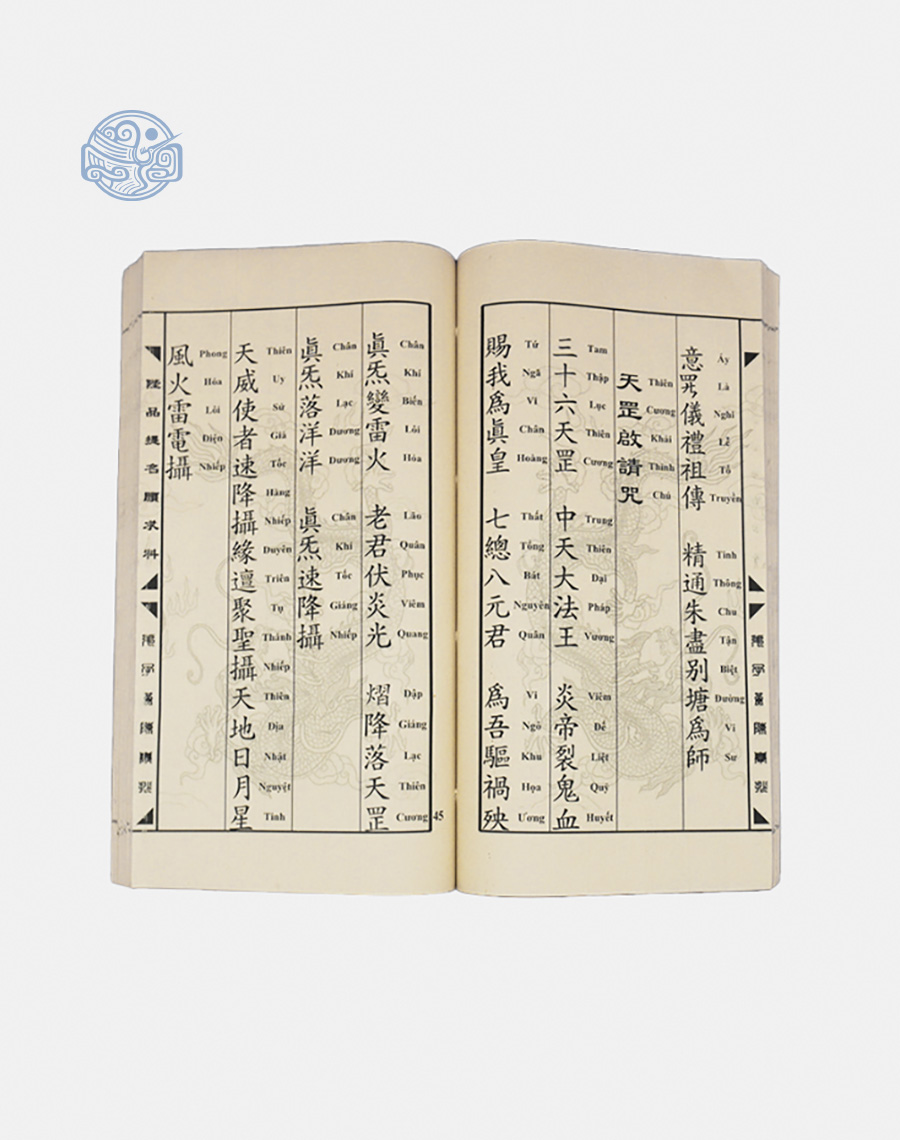 意罡儀禮祖傳 精通朱盡別塘為師
Áy Là Nghi Lễ Tổ Truyền Tinh Thông Chu Tận Biệt Đường Vi Sư
天罡啟請咒
Thiên Cương Khải Thỉnh Chú
三十六天罡 中天大法王 炎帝裂鬼血
Tam Thập Lục Thiên Cương Trung Thiên Đại Pháp Vương Viêm Đế Liệt Quỷ Huyết
賜我爲眞皇 七總八元君 爲吾驅禍殃
Tứ Ngã Vi Chân Hoàng Thất Tổng Bát Nguyên Quân Vi Ngô Khu Họa Ương
眞炁變雷火 老君伏炎光 熠降落天罡
Chân Khí Biến Lôi Hỏa Lão Quân Phục Viêm Quang Dập Giáng Lạc Thiên Cương
眞炁落洋洋 眞炁速降攝
Chân Khí Lạc Dương Dương Chân Khí Tốc Giáng Nhiếp
天威使者速降攝緣邅聚聖攝天地日月星
Thiên Uy Sứ Giả Tốc Hàng Nhiếp Duyên Triên Tụ Thánh Nhiếp Thiên Địa Nhật Nguyệt Tinh
風火雷電攝
Phong Hỏa Lôi Điện Nhiếp
45